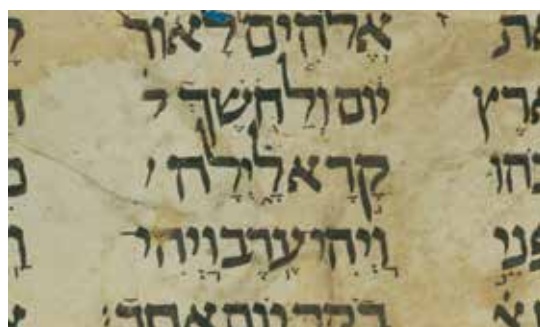 פני
אֱלֹהִים לָאוֹר
יוֹם וְלַחֹשֶׁךְ
קָרָא לָיְלָה
וַיְהִי עֶרֶב וַיְהִי
בקר יום אחד